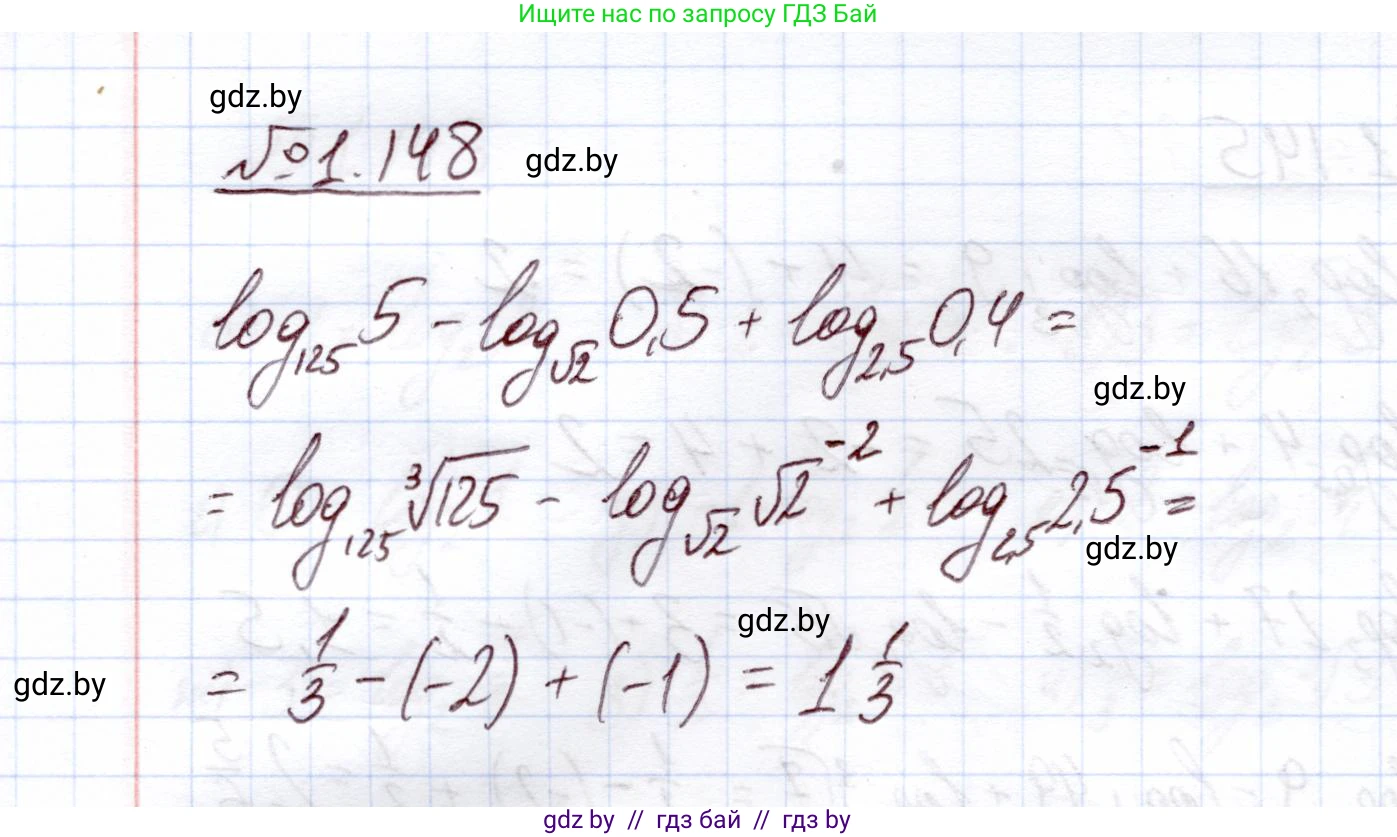 Ищите нас по запросу ГДЗ Бай
gdz.by
№ 1.148
gdz.by
log₁₂₅ 5 - log_√2 0,5 + log₂,₅ 0,4 =
gdz.by
= log₁₂₅ ³√125 - log_√2 √2⁻² + log₂,₅ 2,5⁻¹ =
gdz.by
gdz.by
= 1/3 - (-2) + (-1) = 1 1/3
gdz.by
gdz by // гдз бай // гдз by